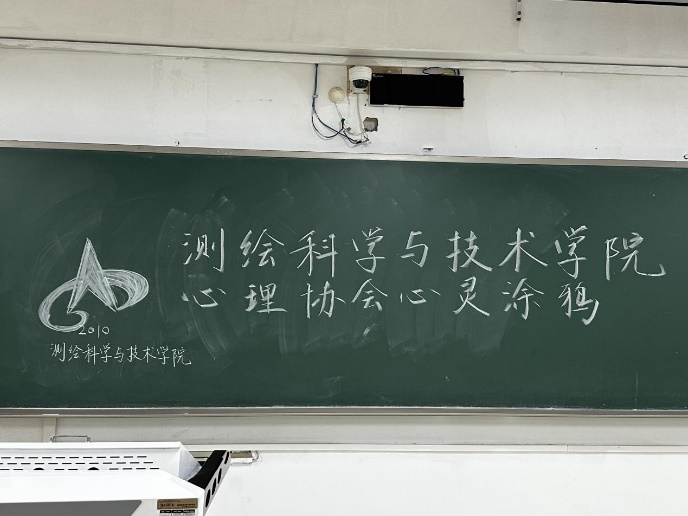 测绘科学与技术学院
心理协会心灵涂鸦
2010
测绘科学与技术学院